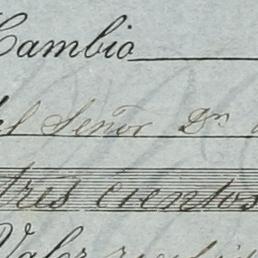 Cambio
el Señor Dn
tres cientos
Valor